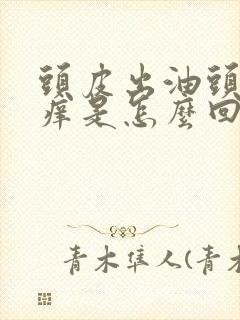 頭皮出油頭
癢是怎麼回
青木隼人(青木